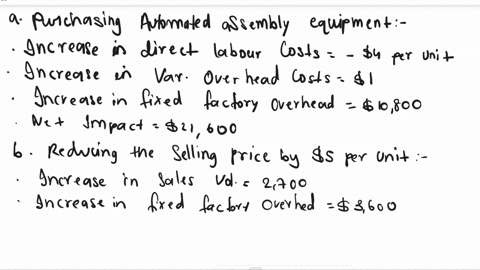 a. Purchasing Automated assembly equipment:-
· Increase in direct labour Costs = - $4 per unit
· Increase in Var. Overhead Costs = $1
· Increase in fixed factory Overhead = $10,800
· Net Impact = $21,600
b. Reducing the Selling price by $5 per unit:-
· Increase in Sales Vol. = 2,700
· Increase in fixed factory Overhed = $3,600